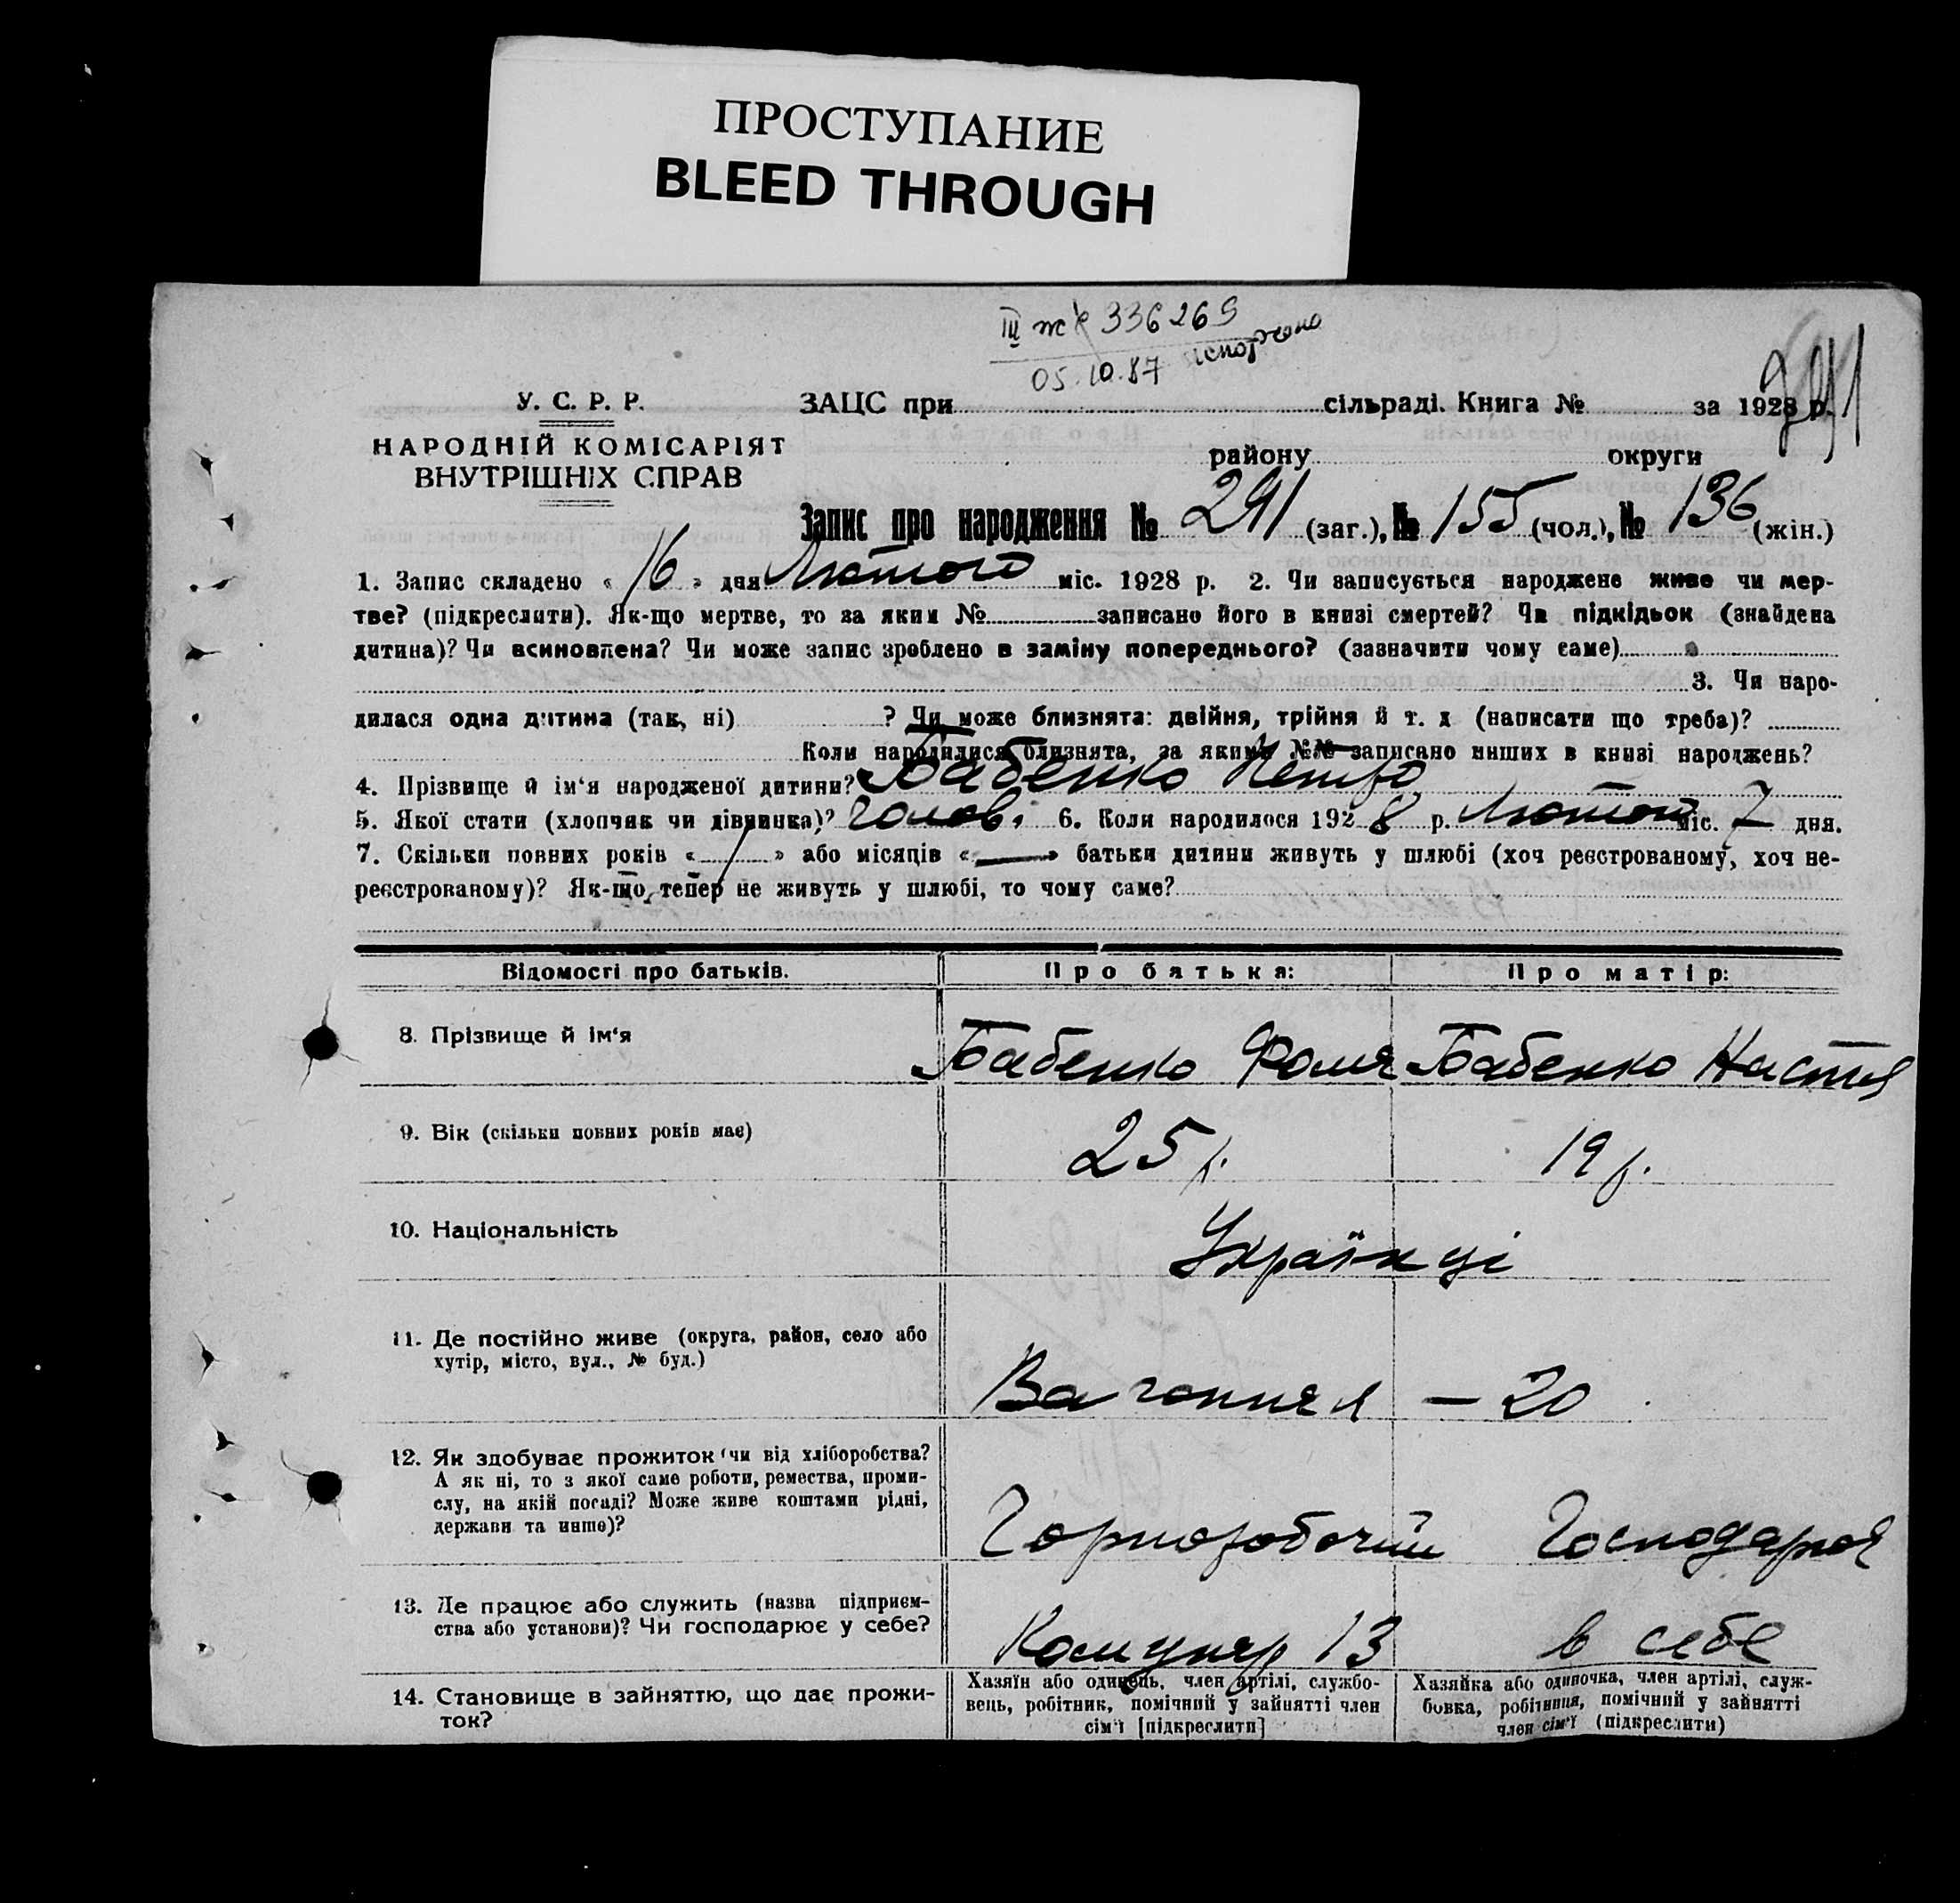 ПРОСТУПАНИЕ
BLEED THROUGH
III 336269
05.10.87
291
У. С. Р. Р.
НАРОДНІЙ КОМІСАРІЯТ
ВНУТРІШНІХ СПРАВ
ЗАЦС при сільраді. Книга № за 1928 р.
району округи
Запис про народження № 291 (заг.), № 155 (чол.), № 136 (жін.)
1. Запис складено « 16 » дня Лютого міс. 1928 р. 2. Чи записується народжене живе чи мер-
тве? (підкреслити). Як-що мертве, то за яким № записано його в книзі смертей? Чи підкідьок (знайдена
дитина)? Чи всиновлена? Чи може запис зроблено в заміну попереднього? (зазначити чому саме)
3. Чи наро-
дилася одна дитина (так, ні) ? Чи може близнята: двійня, трійня й т. д (написати що треба)?
Коли народилися близнята, за якими №№ записано инших в книзі народжень?
4. Прізвище й ім'я народженої дитини? Бабенко Петро
5. Якої стати (хлопчик чи дівчинка)? чолов. 6. Коли народилося 1928 р. Лютого міс. 7 дня.
7. Скільки повних років « 1 » або місяців « — » батьки дитини живуть у шлюбі (хоч реєстрованому, хоч не-
реєстрованому)? Як-що тепер не живуть у шлюбі, то чому саме?
Відомості про батьків. Про батька: Про матір:
8. Прізвище й ім'я Бабенко Фома Бабенко Настя
9. Вік (скільки повних років має) 25 р. 19 р.
10. Національність Українці
11. Де постійно живе (округа, район, село або
хутір, місто, вул., № буд.)
– 20
12. Як здобуває прожиток (чи від хліборобства?
А як ні, то з якої саме роботи, ремества, проми-
слу, на якій посаді? Може живе коштами рідні,
держави та инше)?
Горноробочий Господарює
13. Де працює або служить (назва підприєм-
ства або установи)? Чи господарює у себе?
Комунар 13 в себе
14. Становище в зайняттю, що дає прожи-
ток?
Хазяїн або одинець, член артілі, службо-
вець, робітник, помічний у зайнятті член
сім'ї [підкреслити]
Хазяйка або одиночка, член артілі, служ-
бовка, робітниця, помічний у зайнятті
член сім'ї (підкреслити)